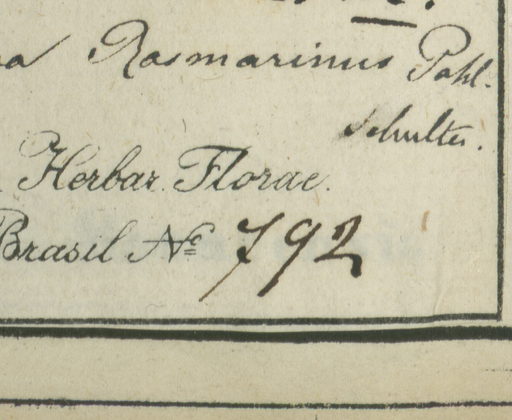 a Rosmarinus Pohl.
Schultes.
Herbar. Florae.
Brasil Nº 792